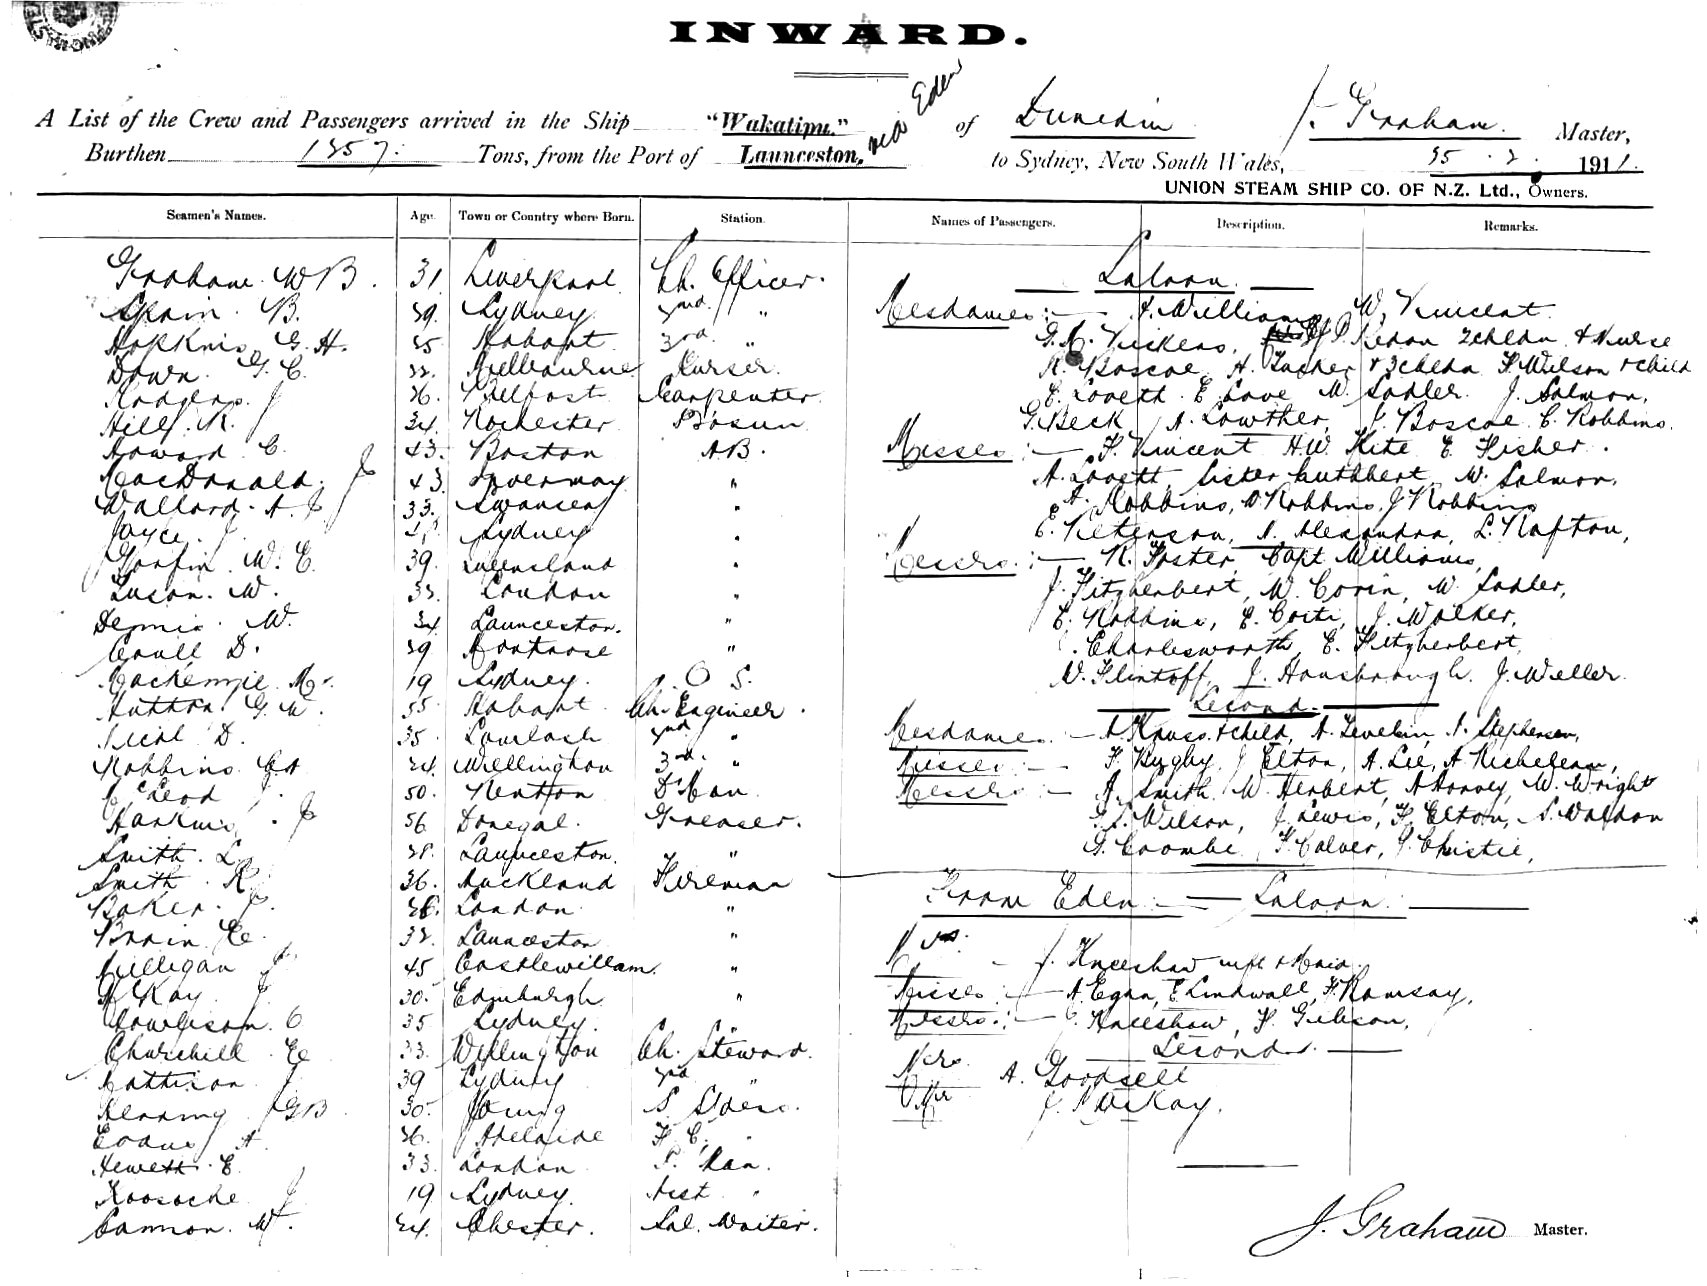 INWARD.
via Eden
A List of the Crew and Passengers arrived in the Ship "Wakatipu." of Dunedin J. Graham Master,
Burthen 1257 Tons, from the Port of Launceston, to Sydney, New South Wales, 25.2. 1911.
UNION STEAM SHIP CO. OF N.Z. Ltd., Owners.
Seamen's Names. Age. Town or Country where Born. Station. Names of Passengers. Description. Remarks.
Graham W B. 31 Liverpool Ch. Officer.
Spain B. 29. Sydney 2nd "
Hopkins G. H. 25 Hobart 3rd "
Down G. C. 22. Melbourne Purser.
Rodgers J 26. Belfast Carpenter
Hill R. 34 Rochester Bosun
Howard C. 43. Boston A.B.
MacDonald J 43. Inverway "
Wallard A J 33. Swansea "
Joyce J. Sydney "
Gorfin W. E. 39. Queensland "
Luson W. 33. London "
Dennis W. 24 Launceston. "
Coull D. 29 Montrose "
Mackenzie M. 19 Sydney. O S.
Hutton G. W. 55 Hobart Ch. Engineer.
D. 35. 2nd "
Robbins C A 24. Wellington 3rd "
McLeod J. 50. D'Man
Harkins J 56. Donegal. Greaser.
Smith L. 28. Launceston. "
Smith R 36. Auckland Fireman
Baker J. 26. London "
Brain E. 32. Launceston "
Milligan J 45 Castlewillam. "
McKay J 30. Edinburgh "
C 35 Sydney. "
Churchill E 33. Wellington Ch. Steward.
Mattison J. 39 Sydney 2nd "
GB. 30. Young S. Stores.
Evans A 26. Adelaide F. C. "
Hewett E. 33. London P. Man.
J 19 Sydney. Asst "
Cannon W. 24. Chester. Sal. Waiter.
Saloon.
Mesdames :— J. Williams, W. Vincent
G. M. Vickers, P. 2 chldn & Nurse
R. Boscoe, A. Tucker & 3 chldn F. Wilson & child
E. Lovett E Love W. Sadler. J. Salmon,
G. Beck A. Lowther, J Boscoe C. Robbins.
Misses :— F. Vincent H. W. Kite E Fisher.
A. Lovett, Sister Cuthbert, W. Salmon,
A. Robbins, D. Robbins, J Robbins
E. Peterson, A. Alexandra, L. Nafton,
Messrs. :— R. Foster, Capt Williams,
J. Fitzherbert, W. Corin, W. Sadler,
E. Robbins, E. Corti, J. Walker,
C. Charlesworth, E. Fitzherbert,
W. Flintoff, J. Hansbrough. J. Weller.
Second.
Mesdames. — A Krauss & child, A. Stephensen,
Misses :— F. Rugby, J Elton, A. Lee, A Richelieau,
Messrs :— A. Smith. W. Herbert, A Harvey, W. Wright
G. S. Wilson, J Lewis, F. Elton, S. Waldon
G. Coombe F. Calver, J. Christie,
From Eden — Saloon.
Mrs. — J. Kneeshaw infl & Maid.
Misses :— A. Egan, E Lindwall, F. Ramsay,
Messrs. :— C. Kneeshaw, F. Gibson,
Second.
Mrs. A. Goodsell
Mr J. McKay.
J. Graham Master.